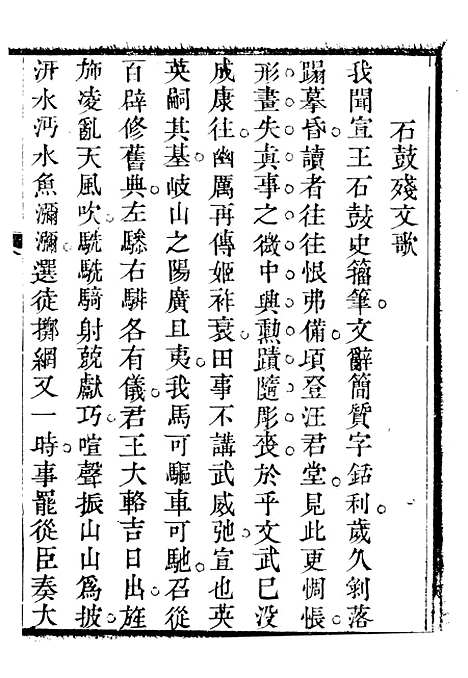 石鼓殘文歌
我聞宣王石鼓史籀筆。文辭簡質字銛利。歲久剝落
蹋摹昏。讀者往往恨弗備。頃登汪君堂。見此更惆悵。
形畫失真事之微。中興勲蹟隨彫喪。於乎文武已没
成康往。幽厲再傳姬祚衰。田事不講武威弛。宣也英
英嗣其基。岐山之陽廣且夷。我馬可驅車可馳。召從
百辟修舊典。左驂右騑各有儀。君王大輅吉日出。旌
斾凌亂天風吹。駪駪騎射競獻巧。喧聲振山山為披。
汧水沔水魚瀰瀰。選徒擲網又一時。事罷從臣奏大